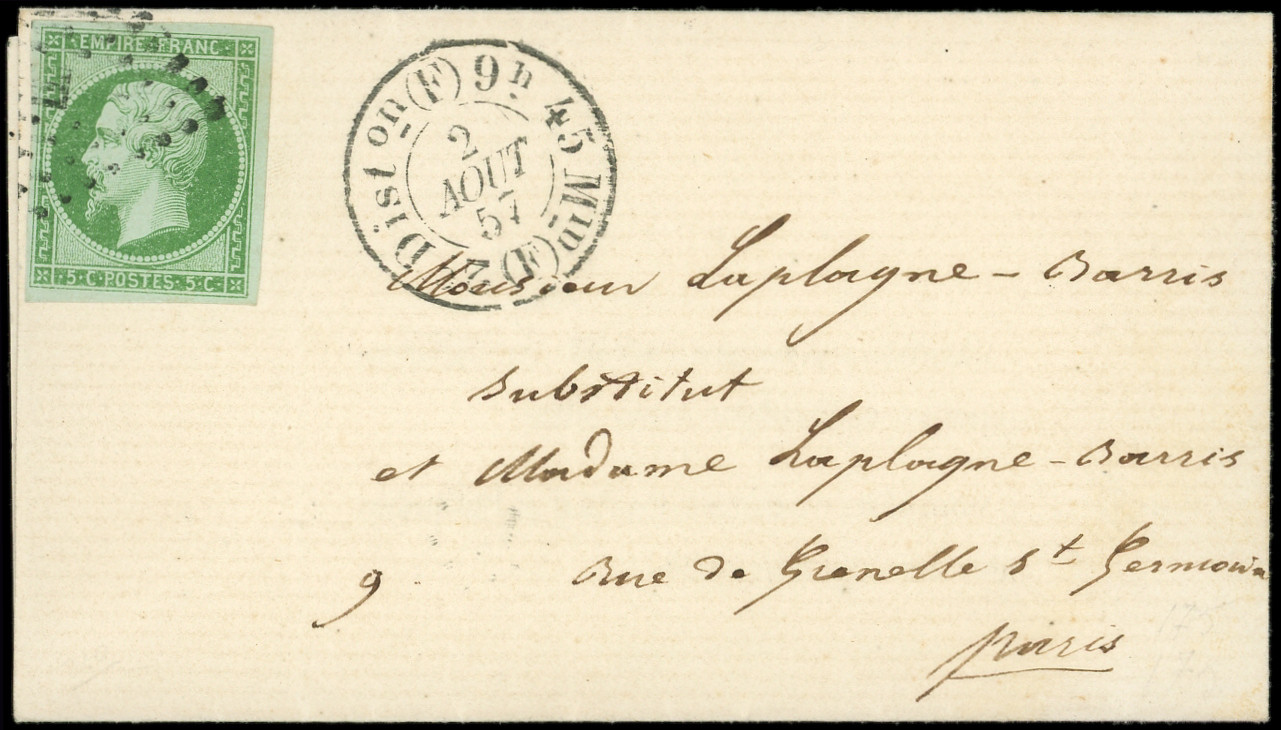 EMPIRE FRANC
5 C POSTES 5 C
2 Dist on (F) 9h 45 M1D (F)
2
AOUT
57
Monsieur Laplagne-Barris
Substitut
et Madame Laplagne-Barris
9 Rue de Grenelle St Germain
Paris